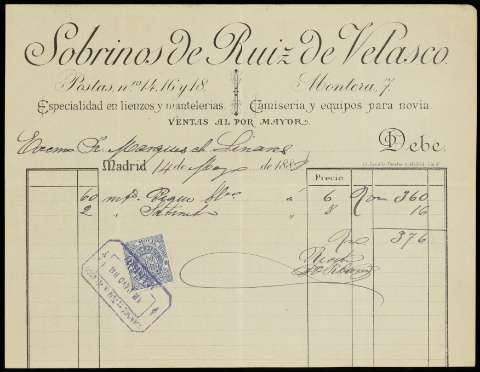 Sobrinos de Ruiz de Velasco.
Postas, n.os 14, 16 y 18. Montera, 7.
Especialidad en lienzos y mantelerías. Camisería y equipos para novia.
VENTAS AL POR MAYOR.
Excmo Sr. Marques de Linares Debe.
Madrid 14 de Mayo de 188
Precio.
60 mts Pique á 6 Rvon 360
2 " " 8 16
376